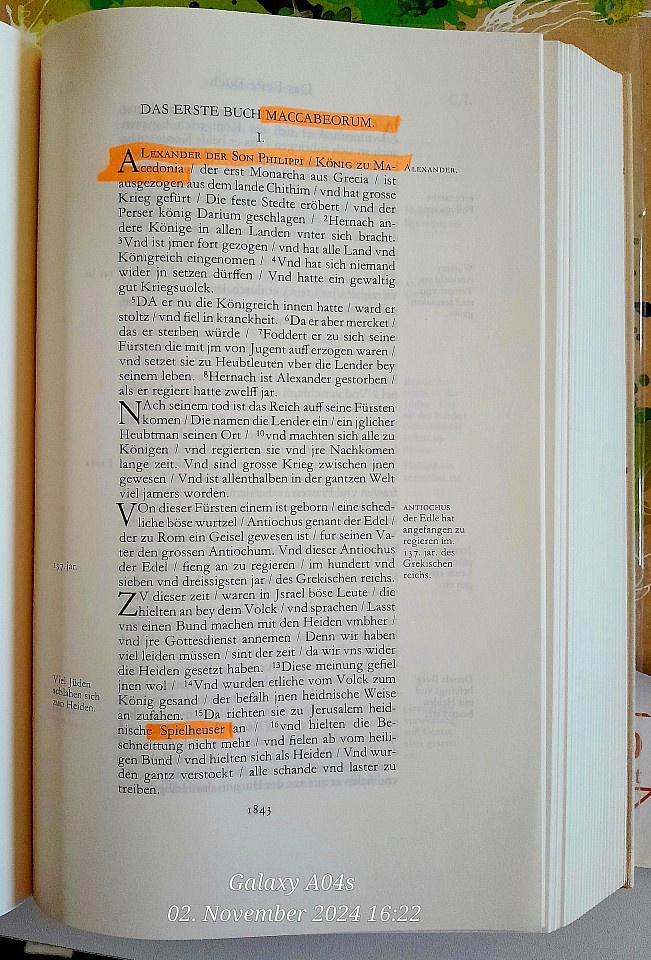 DAS ERSTE BUCH MACCABEORUM.
I.
ALEXANDER DER SON PHILIPPI / KÖNIG ZU MA-
cedonia / der erst Monarcha aus Grecia / ist
ausgezogen aus dem lande Chithim / vnd hat grosse
Krieg gefürt / Die feste Stedte eröbert / vnd der
Perser könig Darium geschlagen / 2Hernach an-
dere Könige in allen Landen vnter sich bracht.
3Vnd ist jmer fort gezogen / vnd hat alle Land vnd
Königreich eingenomen / 4Vnd hat sich niemand
wider jn setzen dürffen / Vnd hatte ein gewaltig
gut Kriegsuolck.
5DA er nu die Königreich innen hatte / ward er
stoltz / vnd fiel in kranckheit. 6Da er aber mercket /
das er sterben würde / 7Foddert er zu sich seine
Fürsten die mit jm von Jugent auff erzogen waren /
vnd setzet sie zu Heubtleuten vber die Lender bey
seinem leben. 8Hernach ist Alexander gestorben /
als er regiert hatte zwelff jar.
NAch seinem tod ist das Reich auff seine Fürsten
komen / Die namen die Lender ein / ein jglicher
Heubtman seinen Ort / 10vnd machten sich alle zu
Königen / vnd regierten sie vnd jre Nachkomen
lange zeit. Vnd sind grosse Krieg zwischen jnen
gewesen / Vnd ist allenthalben in der gantzen Welt
viel jamers worden.
VOn dieser Fürsten einem ist geborn / eine sched-
liche böse wurtzel / Antiochus genant der Edel /
der zu Rom ein Geisel gewesen ist / fur seinen Va-
ter den grossen Antiochum. Vnd dieser Antiochus
der Edel / fieng an zu regieren / im hundert vnd
sieben vnd dreissigsten jar / des Grekischen reichs.
ZV dieser zeit / waren in Jsrael böse Leute / die
hielten an bey dem Volck / vnd sprachen / Lasst
vns einen Bund machen mit den Heiden vmbher /
vnd jre Gottesdienst annemen / Denn wir haben
viel leiden müssen / sint der zeit / da wir vns wider
die Heiden gesetzt haben. 13Diese meinung gefiel
jnen wol / 14Vnd wurden etliche vom Volck zum
König gesand / der befalh jnen heidnische Weise
an zufahen. 15Da richten sie zu Jerusalem heid-
nische Spielheuser an / 16vnd hielten die Be-
schneittung nicht mehr / vnd fielen ab vom heili-
gen Bund / vnd hielten sich als Heiden / Vnd wur-
den gantz verstockt / alle schande vnd laster zu
treiben.
ALEXANDER.
ANTIOCHUS
der Edle hat
angefangen zu
regieren im.
137. jar. des
Grekischen
reichs.
137. jar.
Viel Jüden
schlahen sich
zun Heiden.
1843
Galaxy A04s
02. November 2024 16:22